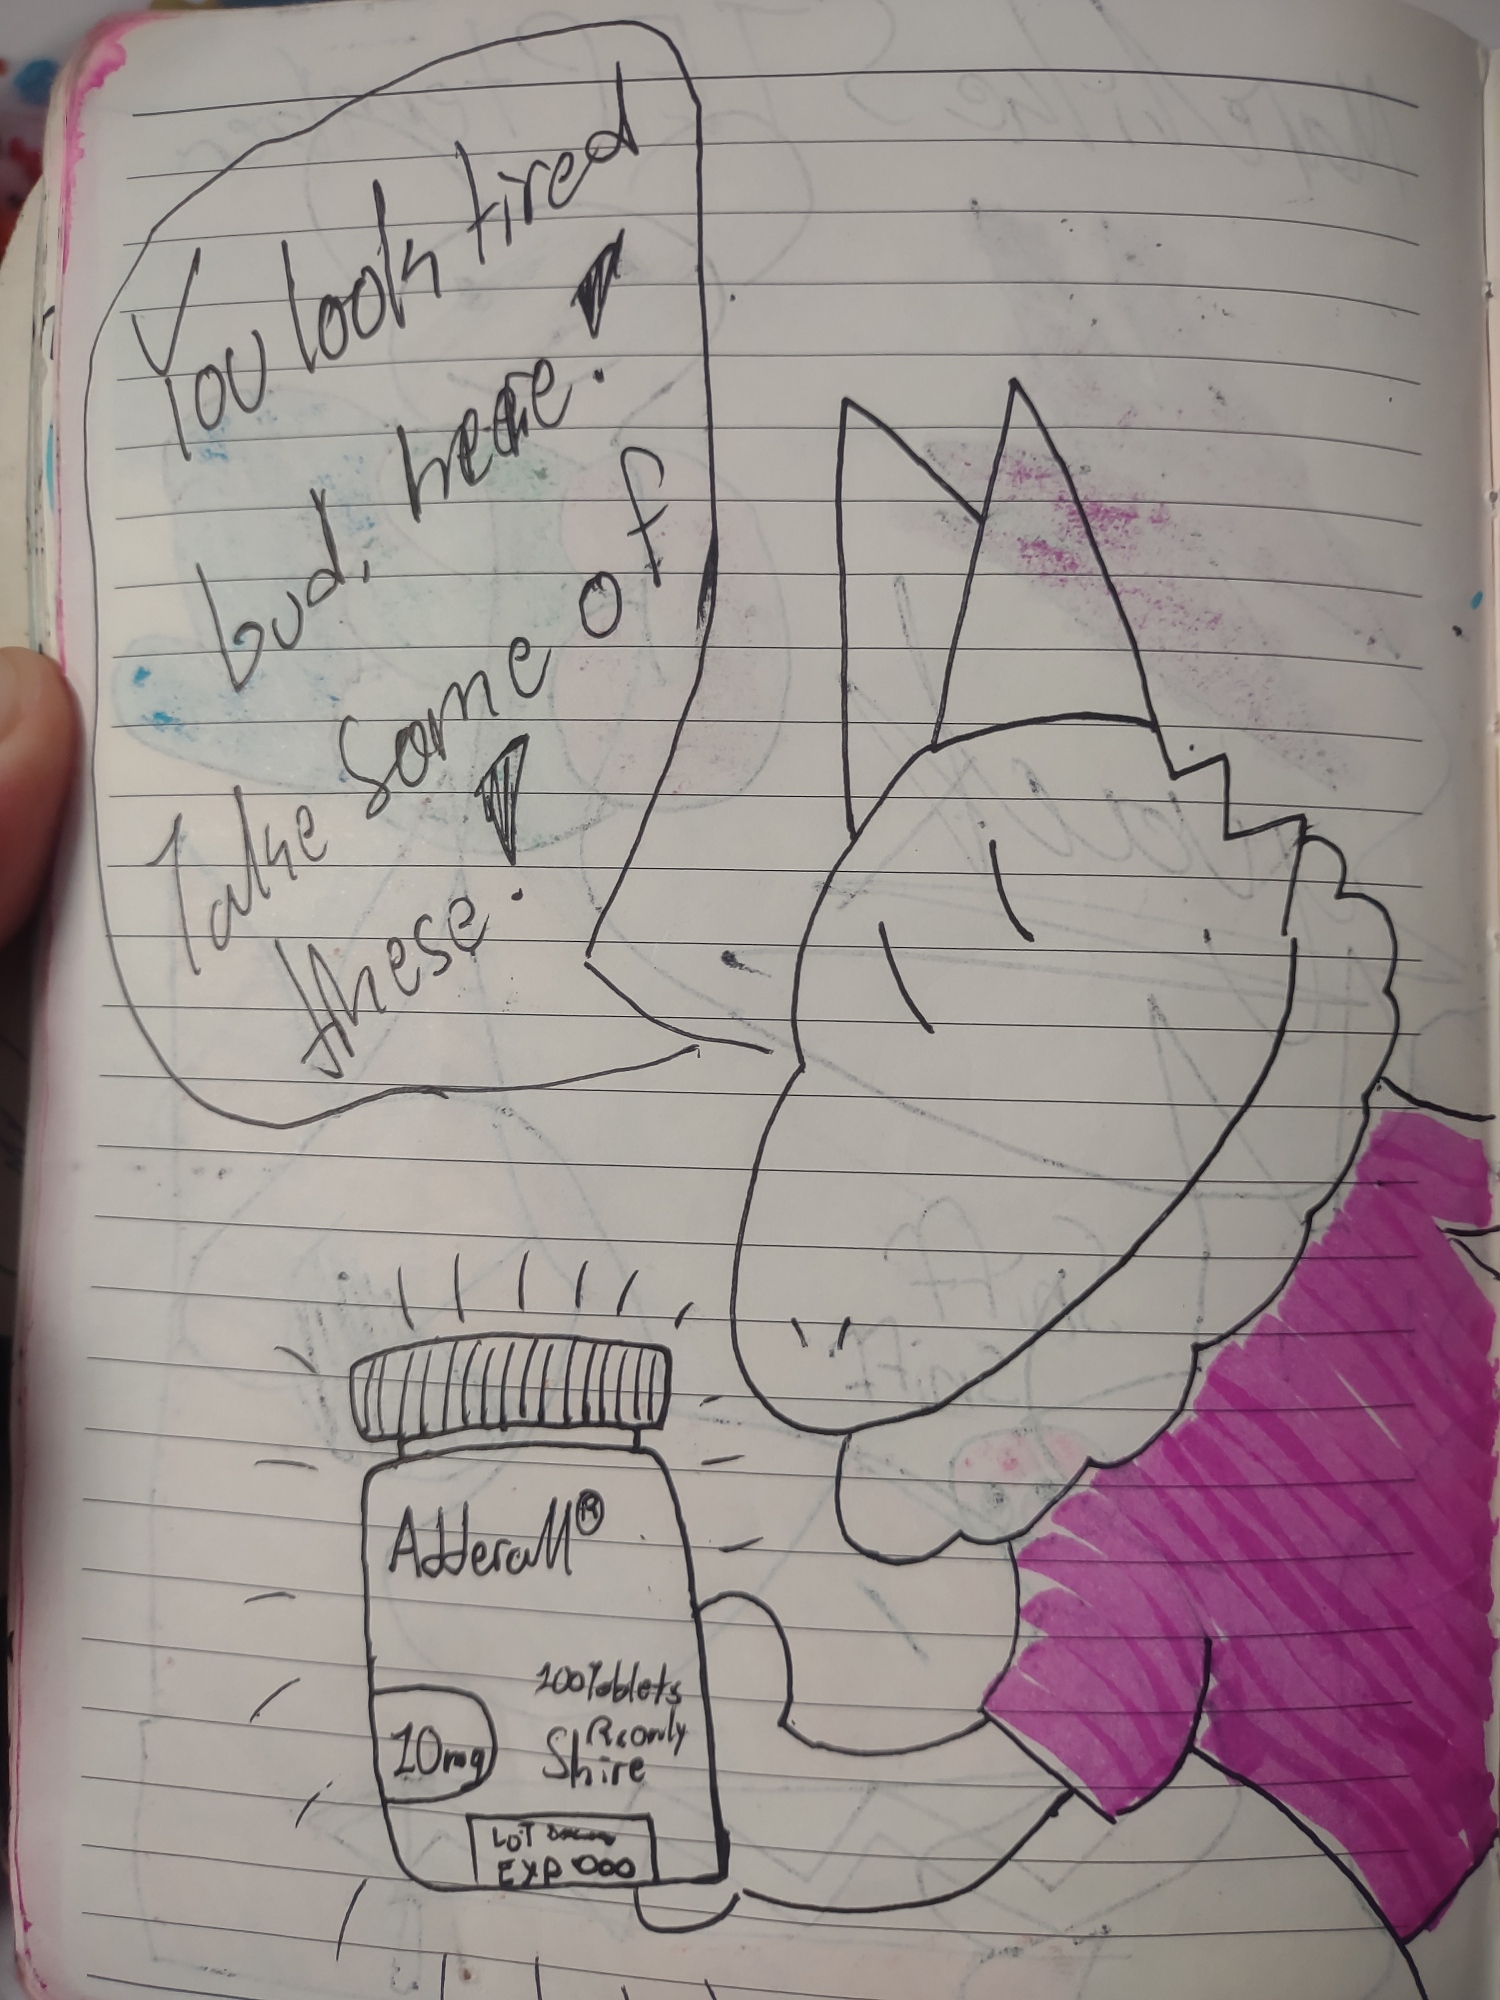 You look tired
bud, here!
Take some of
these!
Adderall®
100 Tablets
Rx only
Shire
10mg
LOT
EXP 000